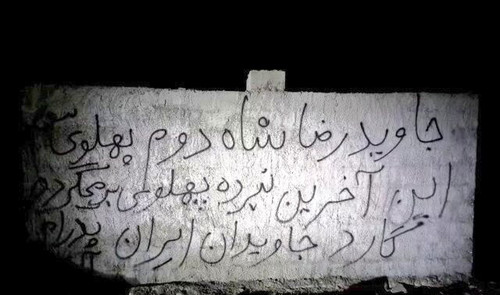 جاوید رضا شاه دوم پهلوی
این آخرین نبرده پهلوی برمیگرده
گارد جاویدان ایران پدرام